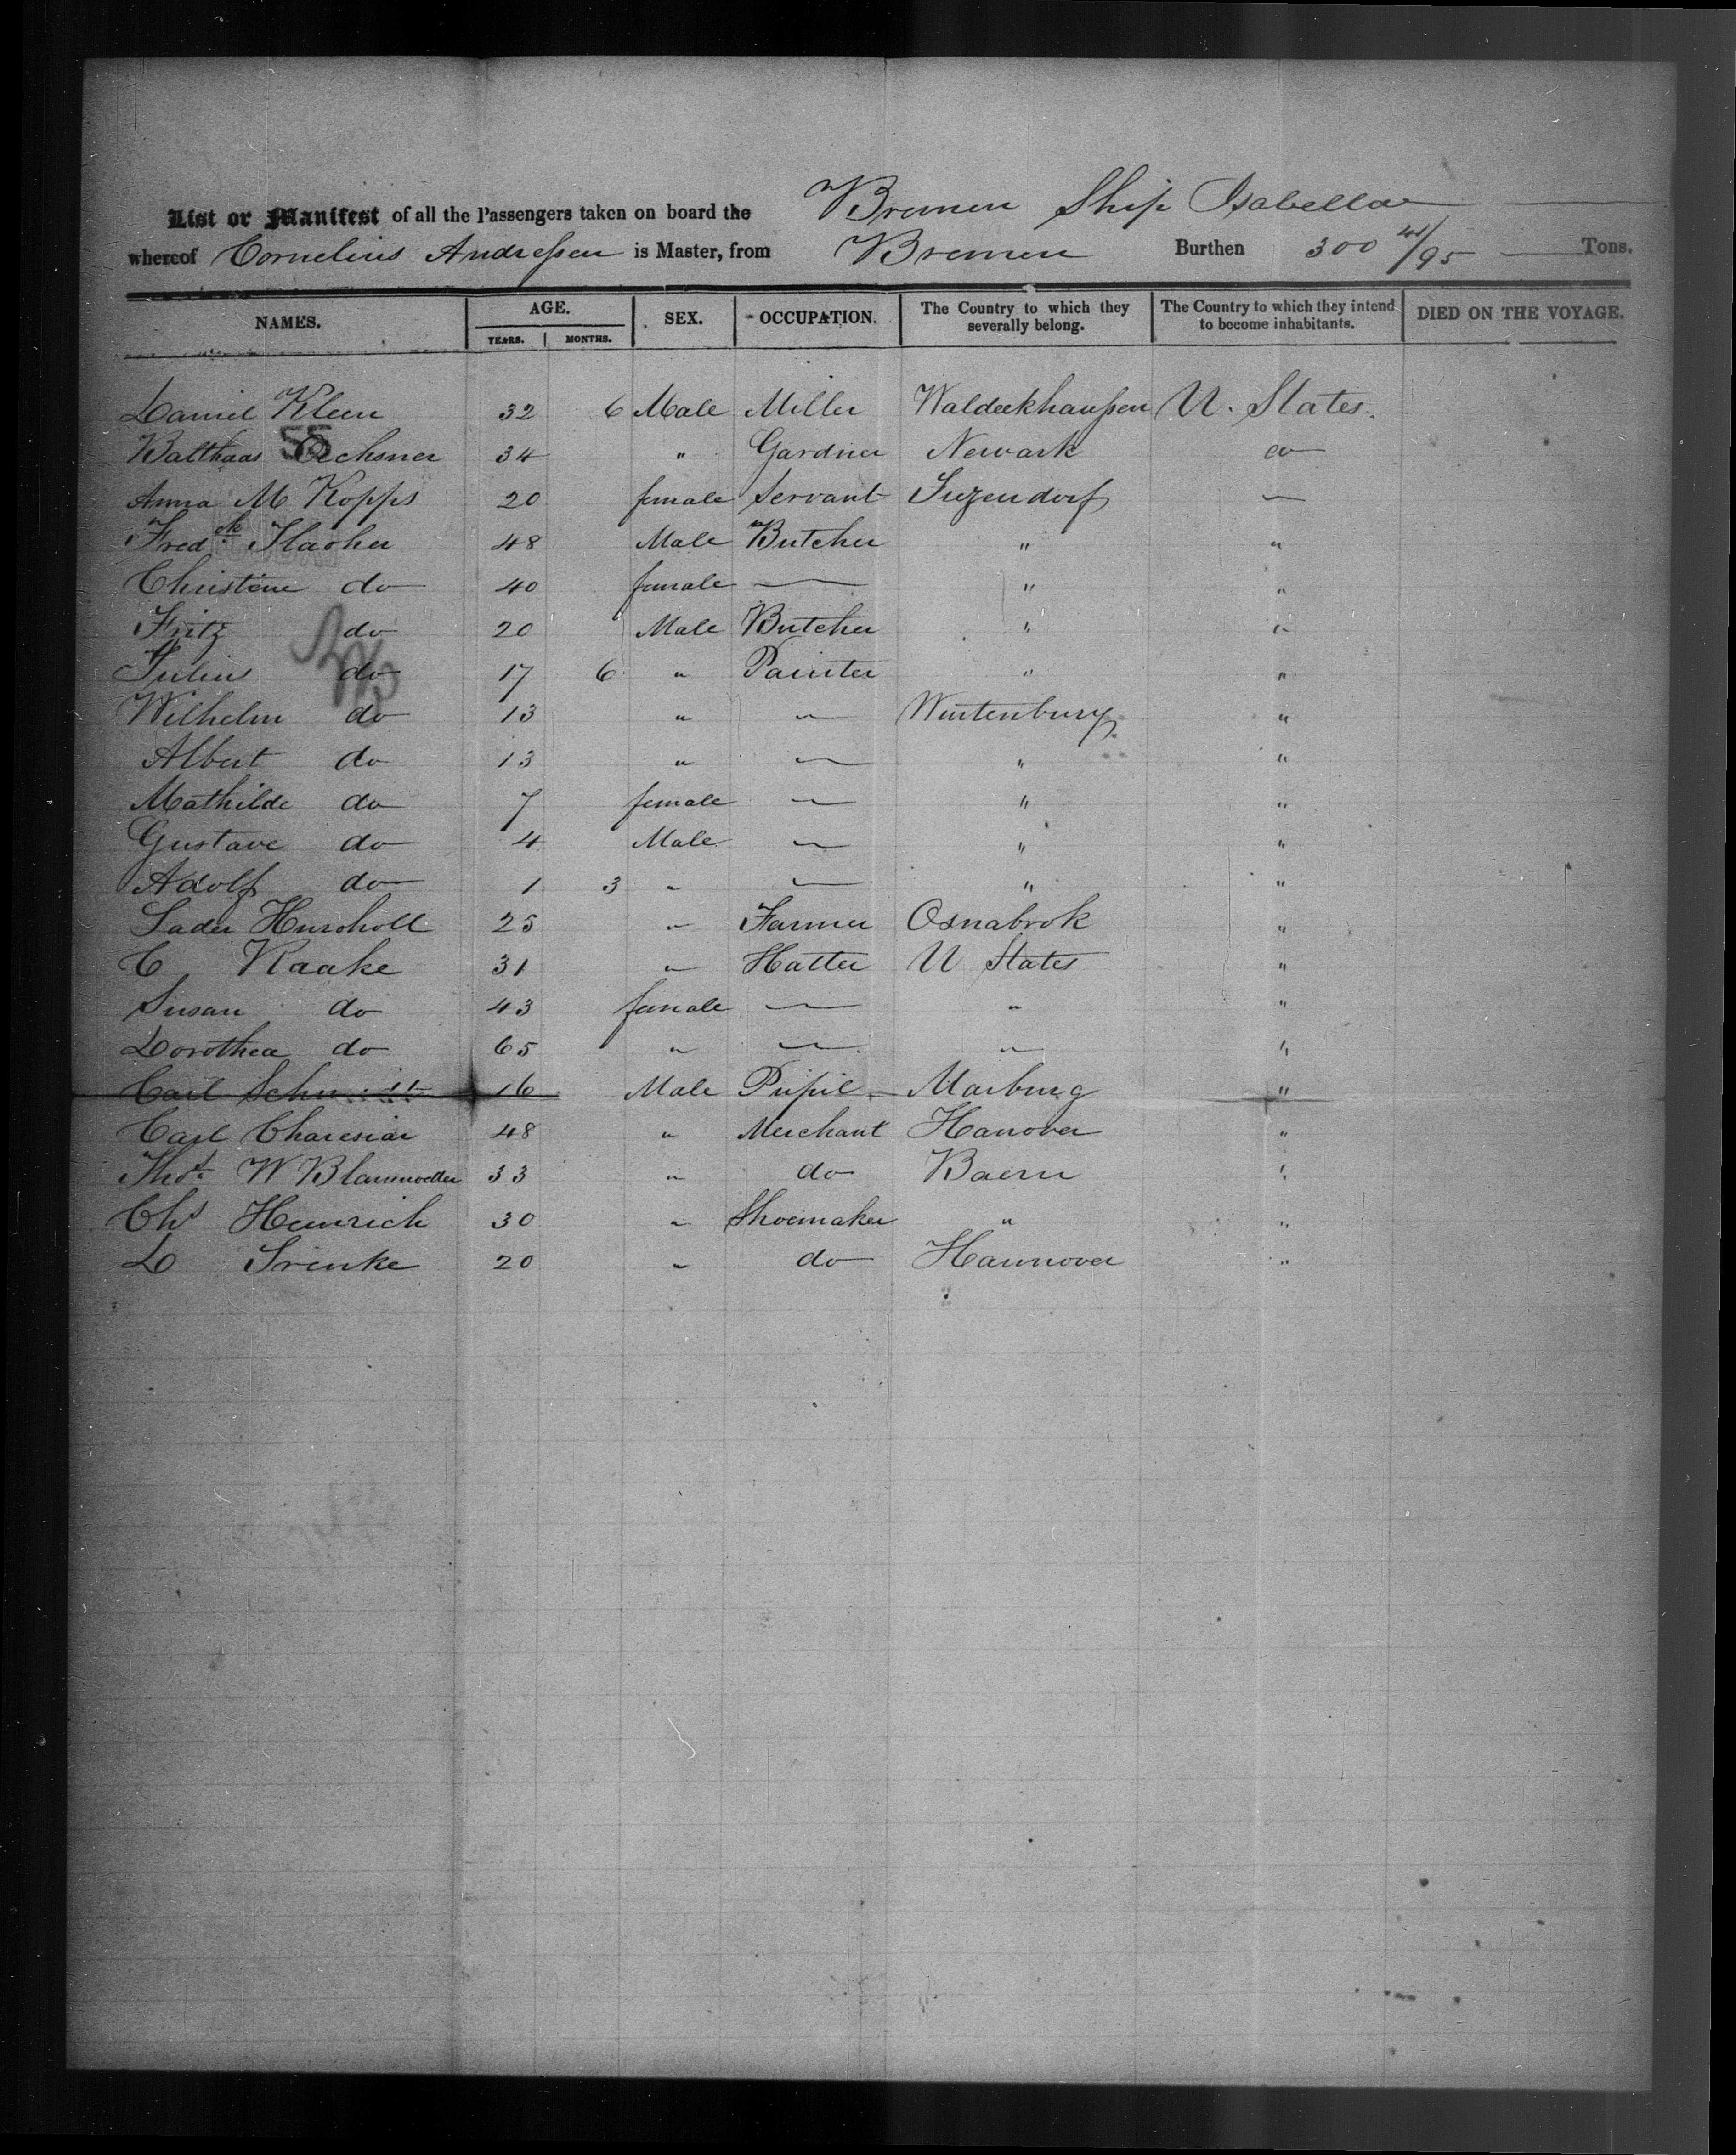 List or Manifest of all the Passengers taken on board the Bremen Ship Isabella
whereof Cornelius Andreſsen is Master, from Bremen Burthen 300 41/95 Tons.
NAMES. AGE. SEX. OCCUPATION. The Country to which they severally belong. The Country to which they intend to become inhabitants. DIED ON THE VOYAGE.
YEARS. MONTHS.
Daniel Kleen 32 6 Male Miller Waldeekhauſsen U. States.
Balthaas Oechsner 34 " Gardner Newark do
55
Anna M Kopps 20 female Servant Suzendorf —
Fredck 48 Male Butcher " "
Christine do 40 female — " "
Fritz do 20 Male Butcher " "
Julius do 17 6 " Painter " "
Wilhelm do 13 " — Wurtenburg "
Albert do 13 " — " "
Mathilde do 7 female — " "
Gustave do 4 Male — " "
Adolf do 1 3 " — " "
25 " Farmer Osnabrok "
C Kaake 31 " Hatter U States "
Susan do 43 female — " "
Dorothea do 65 " — " "
Carl 16 Male Pupil Marburg "
Carl Charesiar 48 " Merchant Hanover "
W 33 " do Baern "
Chs Heinrich 30 " Shoemaker " "
D 20 " do Hannover "